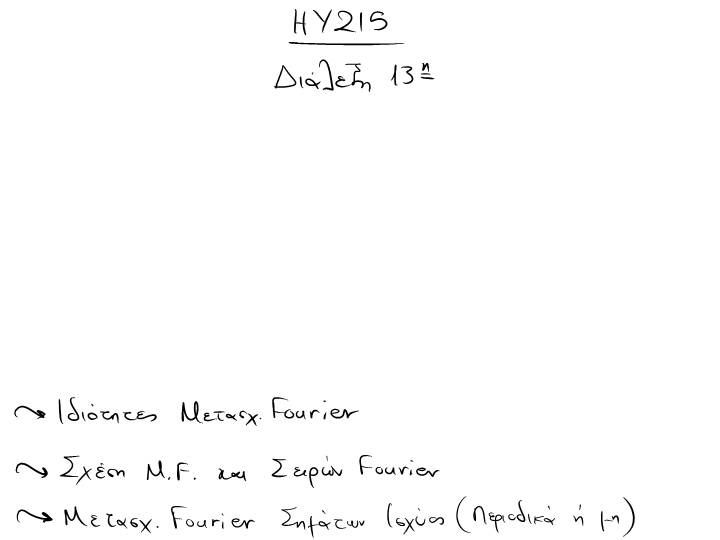 HY215
Διάλεξη 13η
Ιδιότητες Μετασχ. Fourier
Σχέση Μ.F. και Σειρών Fourier
Μετασχ. Fourier Σημάτων Ισχύος (Περιοδικά ή μη)